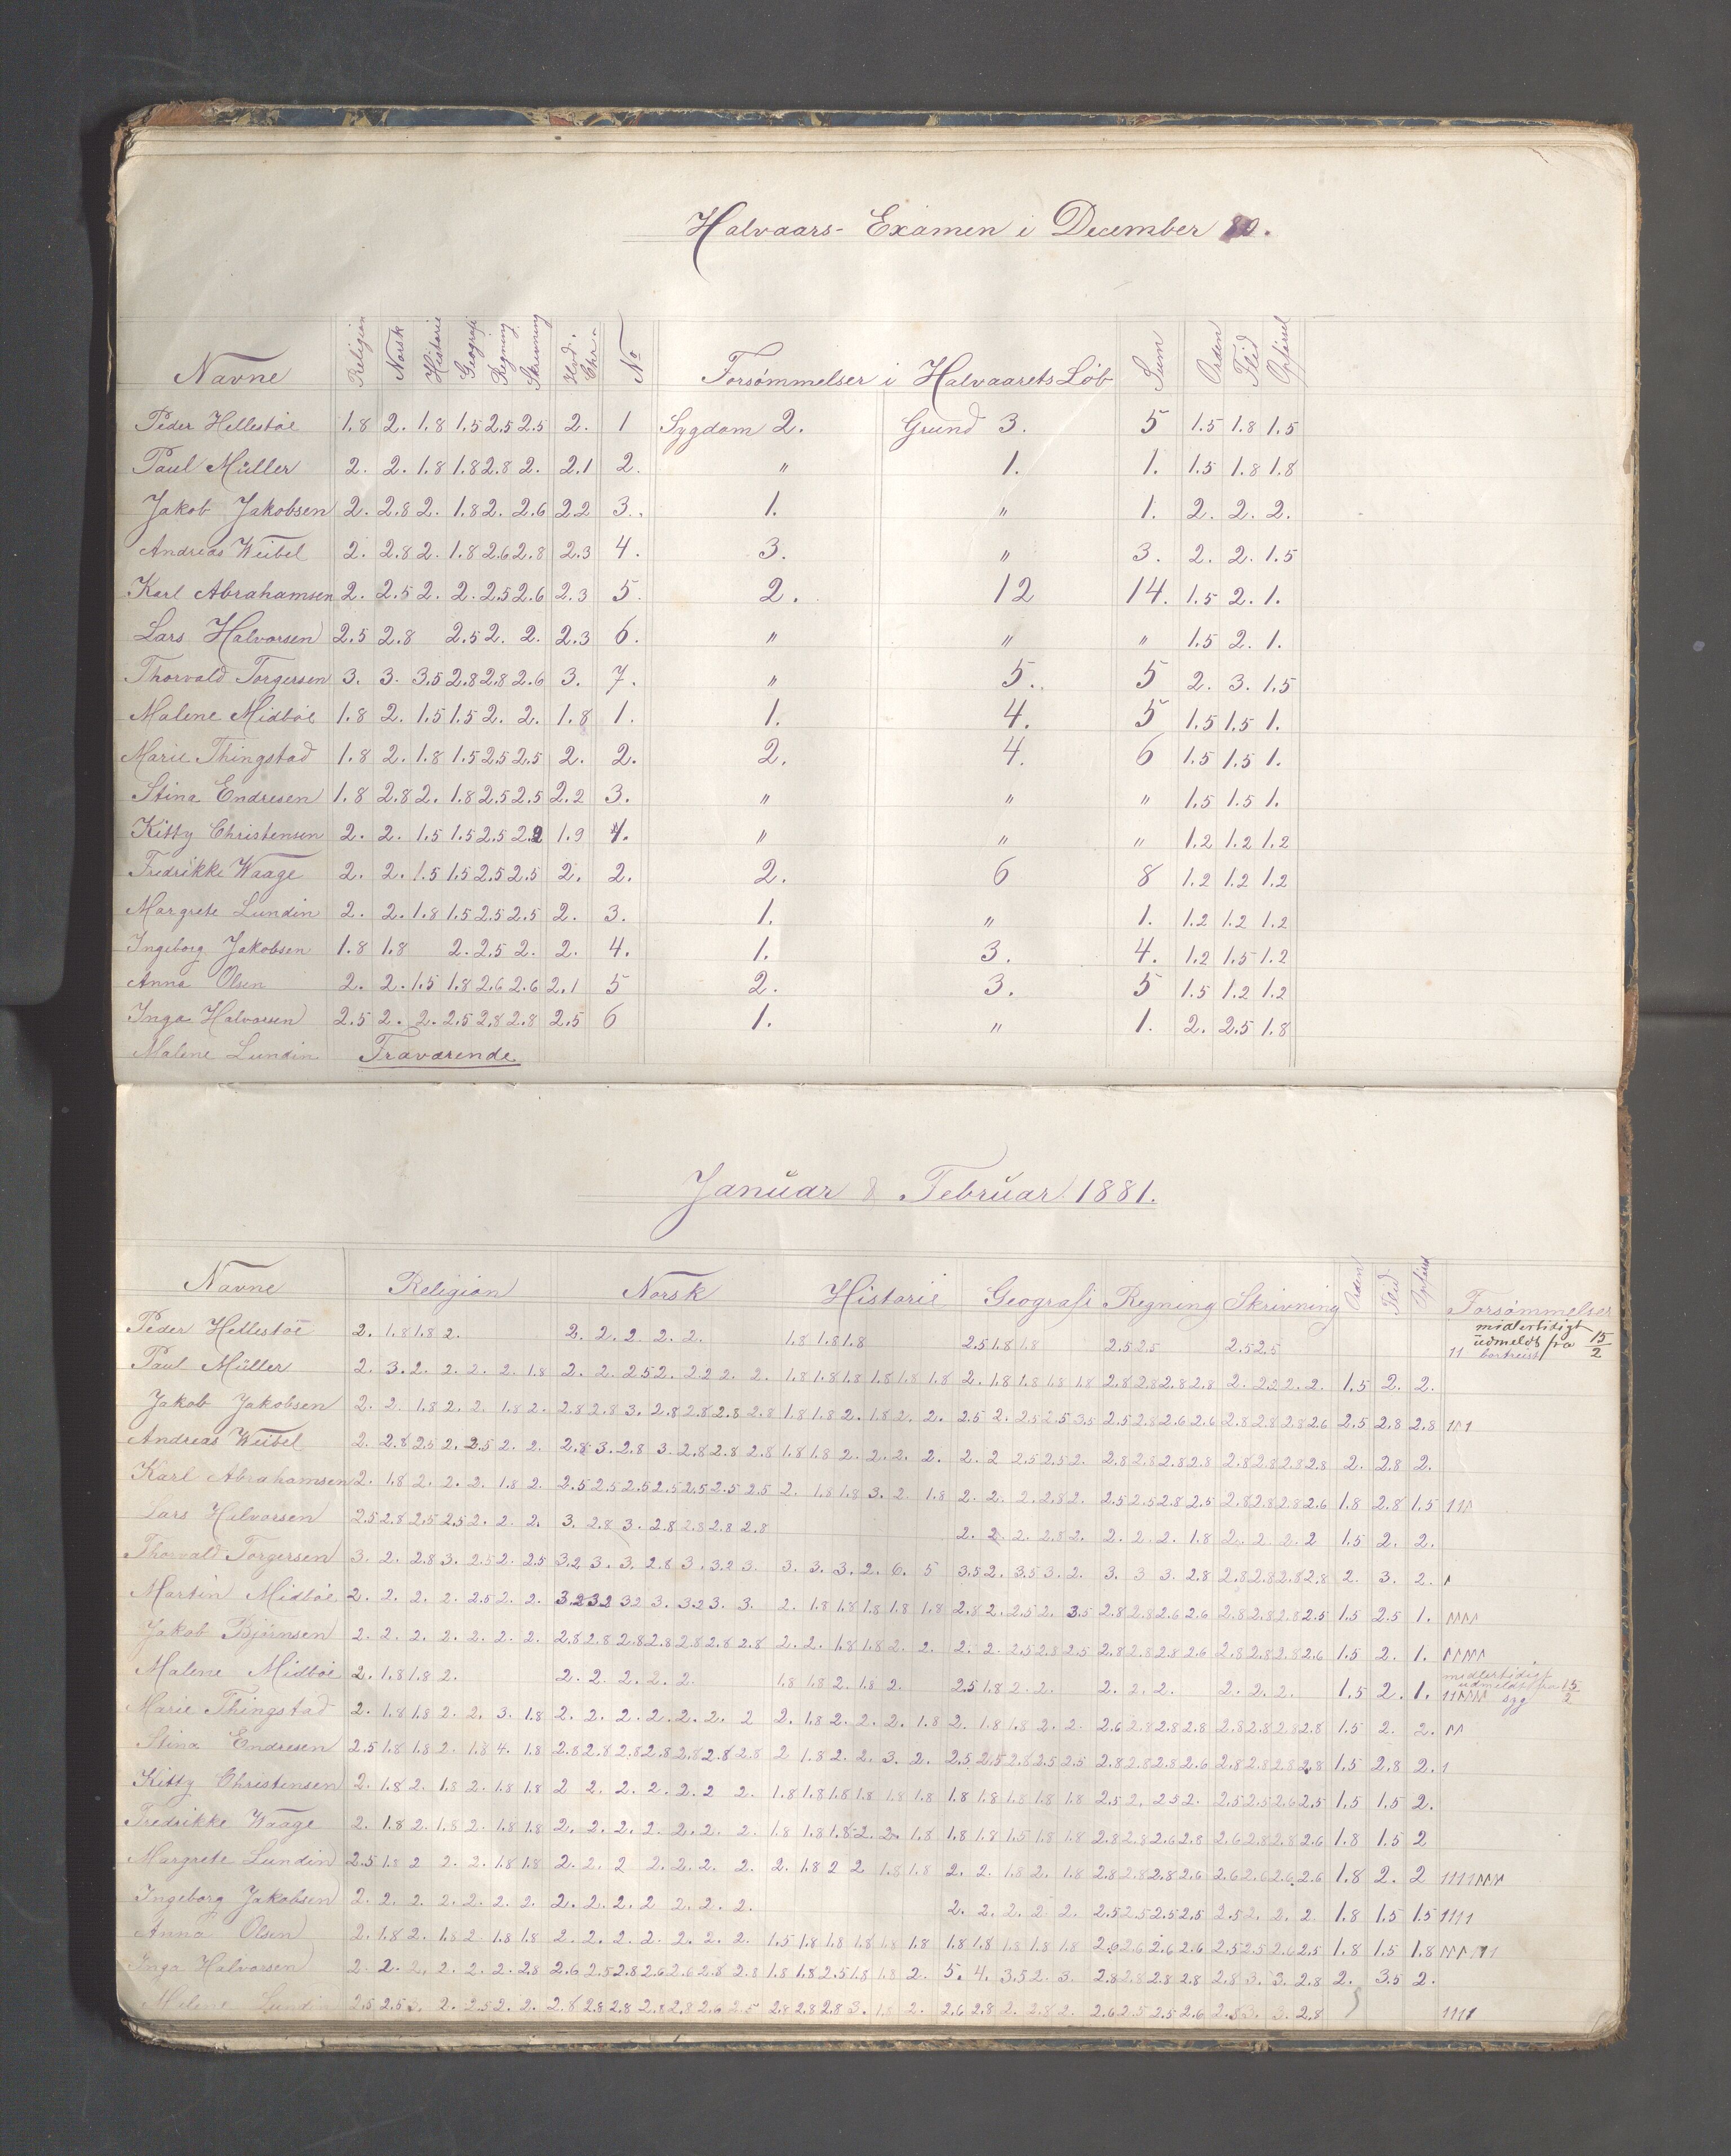 Halvaars-Examen i December 80.
Navne Religion Norsk Historie Geografi Regning Skrivning Hvd. Chr. No Forsømmelser i Halvaarets Løb Sum Orden Flid Opførsel
Peder Hellestöe 1.8 2. 1.8 1.5 2.5 2.5 2. 1 Sygdom 2. Grund 3. 5 1.5 1.8 1.5
Paul Müller 2. 2. 1.8 1.8 2.8 2. 2.1 2. " 1. 1. 1.5 1.8 1.8
Jakob Jakobsen 2. 2.8 2. 1.8 2. 2.6 2.2 3. 1. " 1. 2. 2. 2.
Andreas Weibel 2. 2.8 2. 1.8 2.6 2.8 2.3 4. 3. " 3. 2. 2. 1.5
Karl Abrahamsen 2. 2.5 2. 2. 2.5 2.6 2.3 5. 2. 12 14. 1.5 2. 1.
Lars Halvorsen 2.5 2.8 2.5 2. 2. 2.3 6. " " " 1.5 2. 1.
Thorvald Torgersen 3. 3. 3.5 2.8 2.8 2.6 3. 7. " 5. 5 2. 3. 1.5
Malene Midböe 1.8 2. 1.5 1.5 2. 2. 1.8 1. 1. 4. 5 1.5 1.5 1.
Marie Thingstad 1.8 2. 1.8 1.5 2.5 2.5 2. 2. 2. 4. 6 1.5 1.5 1.
Stina Endresen 1.8 2.8 2. 1.8 2.5 2.5 2.2 3. " " " 1.5 1.5 1.
Kitty Christensen 2. 2. 1.5 1.5 2.5 2.2 1.9 1. " " " 1.2 1.2 1.2
Fredrikke Waage 2. 2. 1.5 1.5 2.5 2.5 2. 2. 2. 6 8 1.2 1.2 1.2
Margrete Lundin 2. 2. 1.8 1.5 2.5 2.5 2. 3. 1. " 1. 1.2 1.2 1.2
Ingeborg Jakobsen 1.8 1.8 2. 2.5 2. 2. 4. 1. 3. 4. 1.2 1.5 1.2
Anna Olsen 2. 2. 1.5 1.8 2.6 2.6 2.1 5 2. 3. 5 1.5 1.2 1.2
Inga Halvorsen 2.5 2. 2. 2.5 2.8 2.8 2.5 6 1. " 1. 2. 2.5 1.8
Malene Lundin Fraværende
Januar & Februar 1881.
Navne Religion Norsk Historie Geografi Regning Skrivning Orden Flid Opførsel Forsømmelser
Peder Hellestöe 2. 1.8 1.8 2. 2. 2. 2. 2. 2. 1.8 1.8 1.8 2.5 1.8 1.8 2.5 2.5 2.5 2.5 11 midlertidigt udmeldt fra 15/2 bortreist
Paul Müller 2. 3. 2. 2. 2. 2. 1.8 2. 2. 2.5 2. 2.2 2. 2. 1.8 1.8 1.8 1.8 1.8 1.8 2. 1.8 1.8 1.8 1.8 2.8 2.8 2.8 2.8 2. 2.2 2. 2. 1.5 2. 2.
Jakob Jakobsen 2. 2. 1.8 2. 2. 1.8 2. 2.8 2.8 3. 2.8 2.8 2.8 2.8 1.8 1.8 2. 1.8 2. 2. 2.5 2. 2.5 2.5 3.5 2.5 2.8 2.6 2.6 2.8 2.8 2.8 2.6 2.5 2.8 2.8
Andreas Weibel 2. 2.8 2.5 2. 2.5 2. 2. 2.8 3. 2.8 3. 2.8 2.8 2.8 1.8 1.8 2. 2. 2. 2. 2. 2 2.5 2.5 2. 2.8 2.8 2.8 2.8 2.8 2.8 2.8 2.8 2. 2.8 2.
Karl Abrahamsen 2. 1.8 2. 2. 2. 1.8 2. 2.5 2.5 2.5 2.5 2.5 2.5 2.5 2. 1.8 1.8 3. 2. 1.8 2. 2. 2. 2.8 2. 2.5 2.5 2.8 2.5 2.8 2.8 2.8 2.6 1.8 2.8 1.5
Lars Halvorsen 2.5 2.8 2.5 2.5 2. 2. 2. 3. 2.8 3. 2.8 2.8 2.8 2.8 2. 2. 2. 2.8 2. 2. 2. 2. 1.8 2. 2. 2. 2 1.5 2. 2.
Thorvald Torgersen 3. 2. 2.8 3. 2.5 2. 2.5 3.2 3. 3. 2.8 3. 3.2 3. 3. 3. 3. 2. 6. 5 3.5 2. 3.5 3. 2. 3. 3 3. 2.8 2.8 2.8 2.8 2.8 2. 3. 2.
Martin Midböe 2. 2. 2. 2. 2.5 2. 2. 3.2 3.2 3.2 3. 3.2 3. 3. 2. 1.8 1.8 1.8 1.8 1.8 2.8 2. 2.5 2. 3.5 2.8 2.8 2.6 2.6 2.8 2.8 2.8 2.5 1.5 2.5 1.
Jakob Bjørnsen 2. 2. 2. 2. 2. 2. 2. 2.8 2.8 2.8 2.8 2.8 2.8 2.8 2. 2. 1.8 1.8 2. 2. 2. 2. 2.5 2.8 2.5 2.8 2.8 2.8 2.6 2.8 2.8 2.8 2.6 1.5 2. 1.
Malene Midböe 2. 1.8 1.8 2. 2. 2. 2. 2. 2. 1.8 1.8 2. 1.8 2. 2.5 1.8 2. 2. 2. 2. 2. 2. 2. 2. 1.5 2. 1. midlertidigt udmeldt fra 15/2 syg
Marie Thingstad 2. 1.8 1.8 2. 2. 3. 1.8 2. 2. 2. 2. 2. 2. 2 2. 1.8 2. 2. 2. 1.8 2. 1.8 1.8 2. 2. 2.6 2.8 2.8 2.8 2.8 2.8 2.8 2.8 1.5 2. 2.
Stina Endresen 2.5 1.8 1.8 2. 1.8 4. 1.8 2.8 2.8 2.8 2.8 2.8 2.8 2.8 2 1.8 2. 2. 3. 2. 2.5 2.5 2.8 2.5 2.5 2.8 2.8 2.8 2.6 2.8 2.8 2.8 2.8 1.5 2.8 2. 1
Kitty Christensen 2. 1.8 2. 1.8 2. 1.8 1.8 2 2. 2. 2. 2. 2 2. 1.8 1.8 1.8 1.8 1.8 1.8 1.8 1.8 1.8 1.8 1.8 2.5 2. 2.5 2. 2.5 2.5 2.6 2.5 1.5 1.5 2.
Fredrikke Waage 2. 1.8 2. 1.8 2. 1.8 1.8 2. 2. 2. 2. 2. 2. 2. 1.8 1.8 1.8 2. 2. 1.8 1.8 1.8 1.5 1.8 1.8 2.8 2.8 2.6 2.8 2.6 2.8 2.8 2.6 1.8 1.5 2
Margrete Lundin 2.5 1.8 2 2. 2. 1.8 1.8 2. 2. 2 2. 2. 2. 2. 2. 1.8 2 2 1.8 1.8 2. 2. 1.8 2. 1.8 2.8 2.8 2.8 2.6 2.6 2.6 2.6 2.6 1.8 2. 2
Ingeborg Jakobsen 2. 2. 2. 2. 2. 2. 2. 2. 2. 2. 2 2. 2. 2. 2. 2. 2. 2 2. 2.5 2.5 2.5 2.5 2.5 2. 2. 2. 1.8 1.5 1.5 1111
Anna Olsen 2. 1.8 2. 1.8 2 1.8 1.8 2. 2. 2. 2. 2. 2. 2. 1.5 1.8 1.8 1.8 1.8 1.8 1.8 1.8 1.8 1.8 1.8 2.6 2.6 2.6 2.6 2.5 2.5 2.6 2.5 1.8 1.5 1.8
Inga Halvorsen 2. 2. 2. 2. 2. 2. 2.8 2.6 2.5 2.8 2.6 2.6 2.8 2.8 1.8 1.8 2.5 1.8 1.8 2. 5. 4. 3.5 2. 3. 2.8 2.8 2.8 2.8 2.8 3. 3. 2.8 2. 3.5 2.
Malene Lundin 2.5 2.5 3. 2. 2.5 2. 2. 2.8 2.8 2.8 2.8 2.8 2.6 2.5 2.8 2.8 2.8 3. 1.8 2. 2.6 2.8 2. 2.8 2. 2.6 2.5 2.5 2.6 2.8 3. 3. 2.8 1111